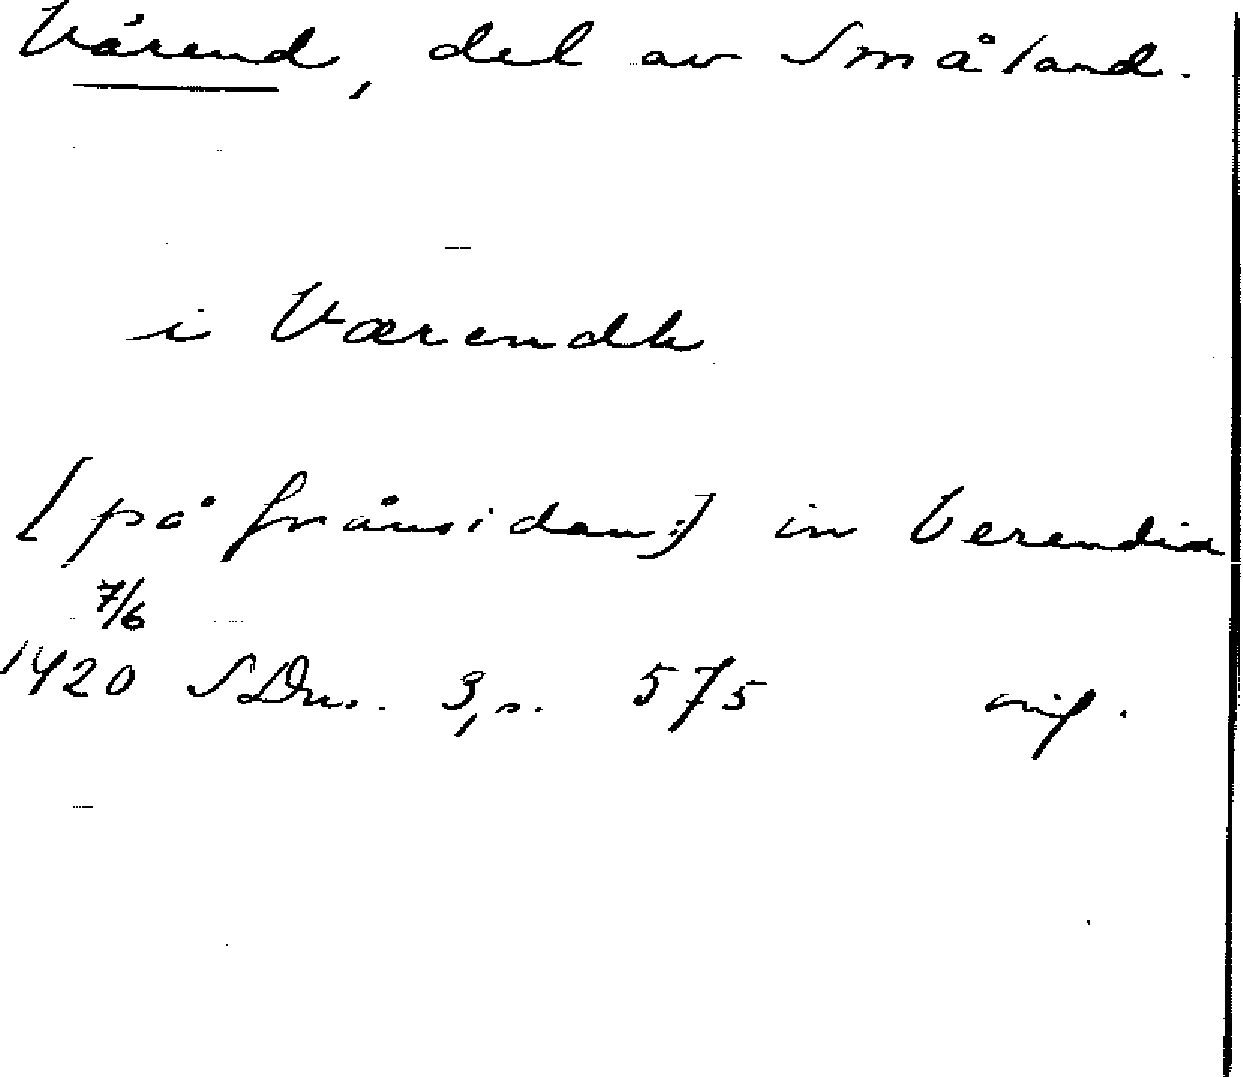 Värend, del av Småland.
i Værendh
[på frånsidan:] in Verendia
7/6
1420 SDns. 3, s. 575